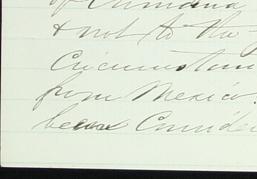 & not to the
Circumstan
from Mexico.
been Conside